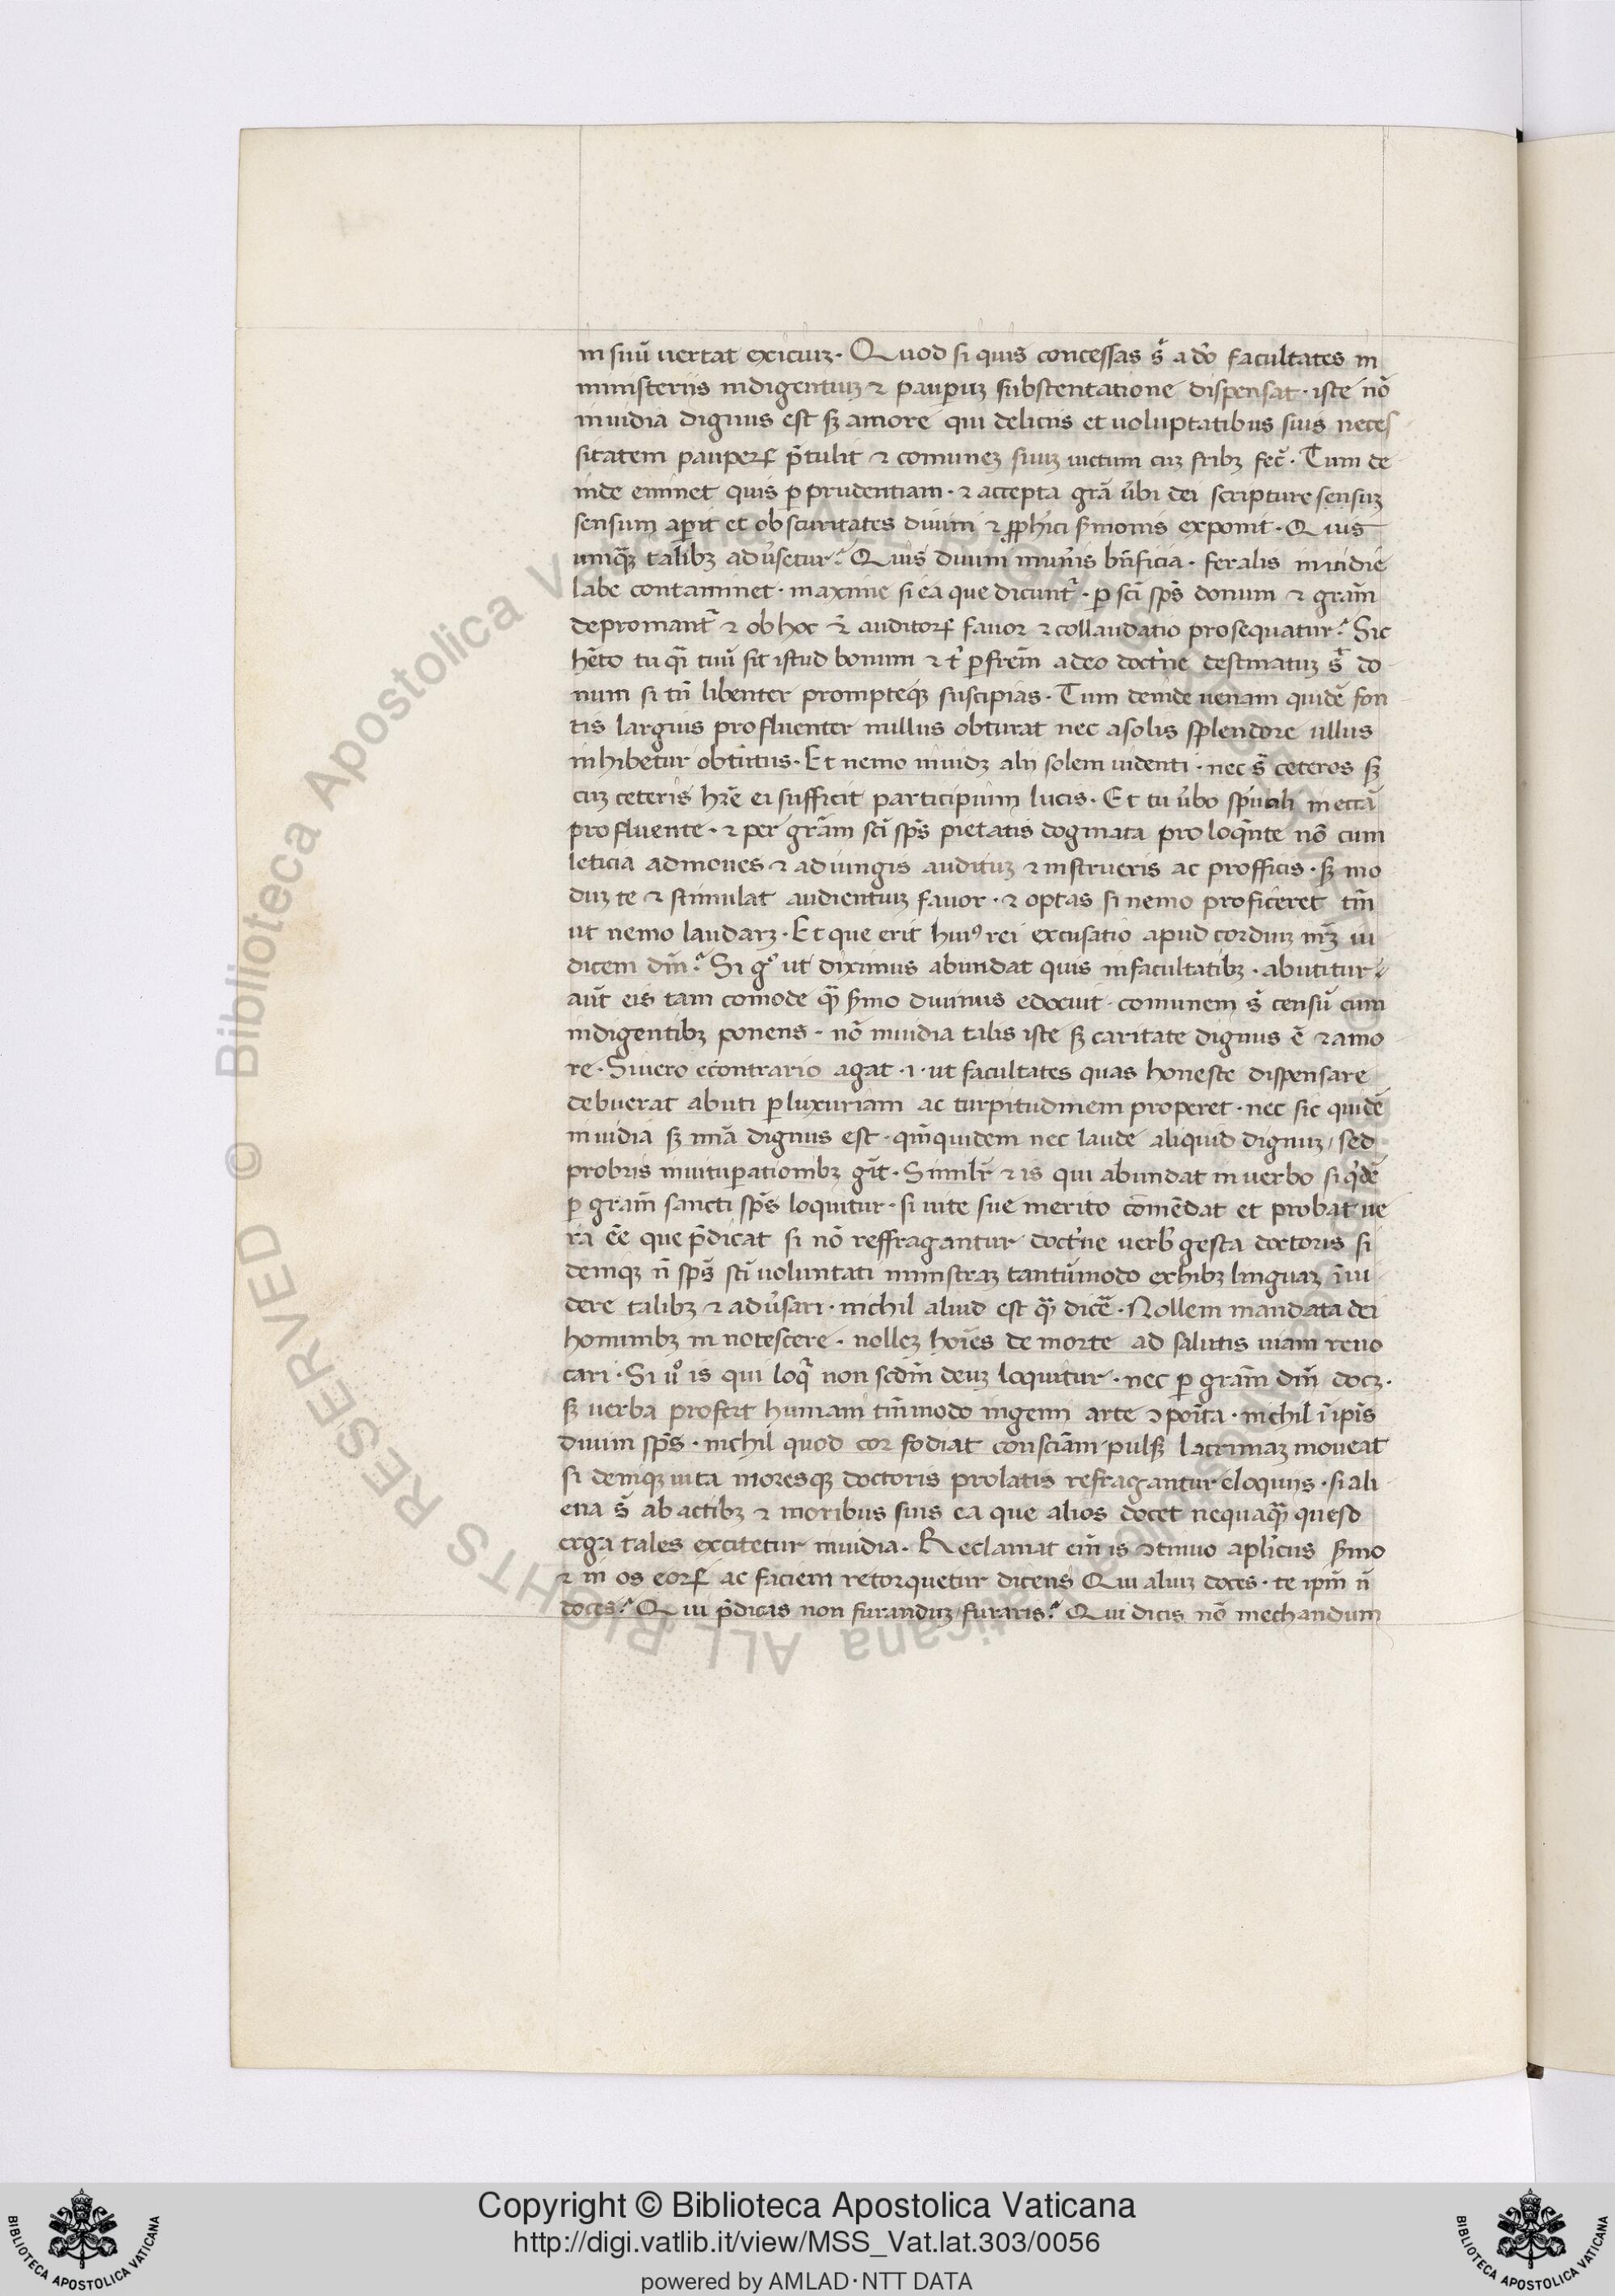 in suū uertat exiciuꝫ. Quod si quis concessas s̄ a dō facultates in
ministeriis indigentiuꝫ ⁊ pauꝑuꝫ substentatione dispensat. iste nō
inuidia dignus est sꝫ amore qui deliciis et uoluptatibus suis neces
sitatem pauperꝝ p̄tulit ⁊ comuneꝫ suuꝫ uictum cuꝫ fribꝫ fec̄. Tum de
inde eminet quis ꝑ prudentiam. ⁊ accepta grā ūbi dei scripture sensuꝫ
sensum aꝑit et obscuritates diuini ⁊ ꝓph̄ici s̄monis exponit. Quis
umqꝫ talibꝫ adūsetur? Quis diuini mun̄is bn̄ficia. feralis inuidie
labe contaminet. maxime si ea que dicunt̄. ꝑ sc̄i sp̄s donum ⁊ gram̄
depromant̄ ⁊ ob hoc auditorꝝ fauor ⁊ collaudatio prosequatur? Sic
hēto tu qī tuū sit istud bonum ⁊ t' ꝑ frēm a deo doct'ne destinatuꝫ s̄ do
num si tn̄ libenter prompteqꝫ suscipias. Tum deinde uenam quidē fon
tis largius profluenter nullus obturat nec a solis splendore ullus
inhibetur obtutus. Et nemo inuidꝫ alii solem uidenti. nec s̄ ceteros sꝫ
cuꝫ ceteris hr̄e ei sufficit participium lucis. Et tu ūbo sp̄uali in ecc̄ā
profluente. ⁊ per grām sc̄i sp̄s pietatis dogmata proloqn̄te nō cum
leticia admoues ⁊ adiungis audituꝫ ⁊ instrueris ac profficis. sꝫ mo
duꝫ te ⁊ stimulat audientiuꝫ fauor. ⁊ optas si nemo proficeret tm̄
ut nemo laudarꝫ. Et que erit huiꝰ rei excusatio apud corduꝫ nr̄ꝫ iu
dicem dn̄m? Si gº ut diximus abundat quis in facultatibꝫ. abutitur
aūt eis tam comode q̄ s̄mo diuinus edocuit. comunem s̄ censū cum
indigentibꝫ ponens. nō inuidia talis iste sꝫ caritate dignus ē ⁊ amo
re. Si uero econtrario agat .i. ut facultates quas honeste dispensare
debuerat abuti ꝑ luxuriam ac turpitudinem properet. nec sic quidē
inuidia sꝫ mīa dignus est. qn̄quidem nec laude aliquid dignuꝫ, sed
probris in uituꝑationibꝫ gīt. Similr̄ ⁊ is qui abundat in uerbo si q'dē
ꝑ gram̄ sancti sp̄s loquitur. si uite sue merito comēdat et probat ue
ra ēē que p̄dicat si nō reffragantur doct'ne uerb' gesta doctoris si
deniqꝫ n̄ sp̄s sc̄i uoluntati ministraꝫ tantūmodo exhibꝫ linguaꝫ īui
dere talibꝫ ⁊ adūsari. nichil aliud est q̄ dicē. Nollem mandata dei
hominibꝫ innotescere. nolleꝫ hoīes de morte ad salutis uiam reuo
cari. Si uº is qui loq̄ non scdm̄ deuꝫ loquitur. nec ꝑ gram̄ dn̄i docꝫ.
sꝫ uerba profert humani tm̄modo ingenii arte ꝯpoīta. nichil ī ip̄is
diuini sp̄s. nichil quod cor fodiat consciām pulsꝫ lacrimaꝫ moueat
si deniqꝫ uita moresqꝫ doctoris prolatis refragantur eloquiis. si ali
ena s̄ ab actibꝫ ⁊ moribus suis ea que alios docet nequaq̄ queso
erga tales excitetur inuidia. Reclamat em̄ is ꝯtinuo apl̄icus s̄mo
⁊ in os eorꝝ ac faciem retorquetur dicens Qui aliuꝫ doces. te ipm̄ n̄
doces? Qui p̄dicas non furanduꝫ, furaris? Qui dicis nō mechandum
Copyright © Biblioteca Apostolica Vaticana
http://digi.vatlib.it/view/MSS_Vat.lat.303/0056
powered by AMLAD·NTT DATA